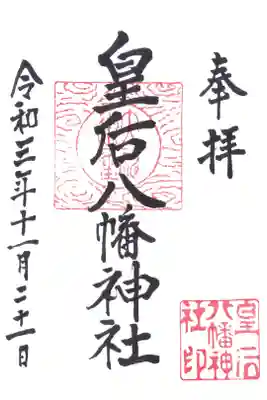 奉拝
皇后八幡神社
令和三年十一月二十一日
皇后
八幡神
社印